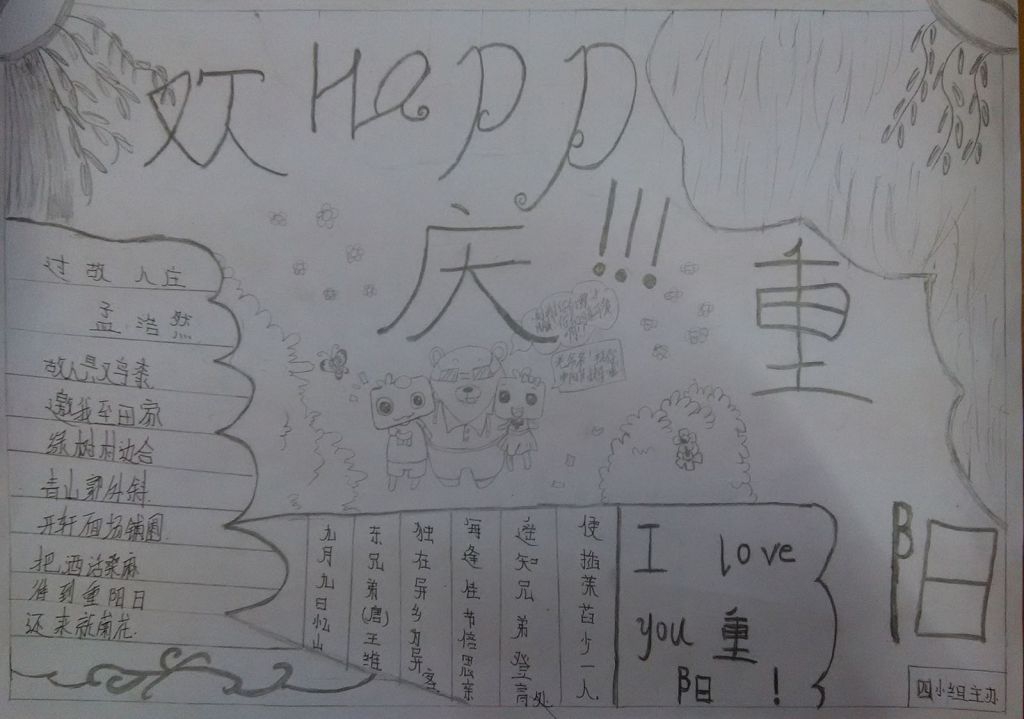 欢 HaPP
庆 !!!
重
阳
过故人庄
孟浩然
故人具又鸟黍
邀我至田家
绿树村边合
青山郭外斜
开轩面场铺圃
把酒话桑麻
待到重阳日
还来就菊花
九月九日忆山
东兄弟(唐)王维
独在异乡为异客
每逢佳节倍思亲
遥知兄弟登高处
便插茱萸少一人
I love
you 重
阳 !
四小组主办